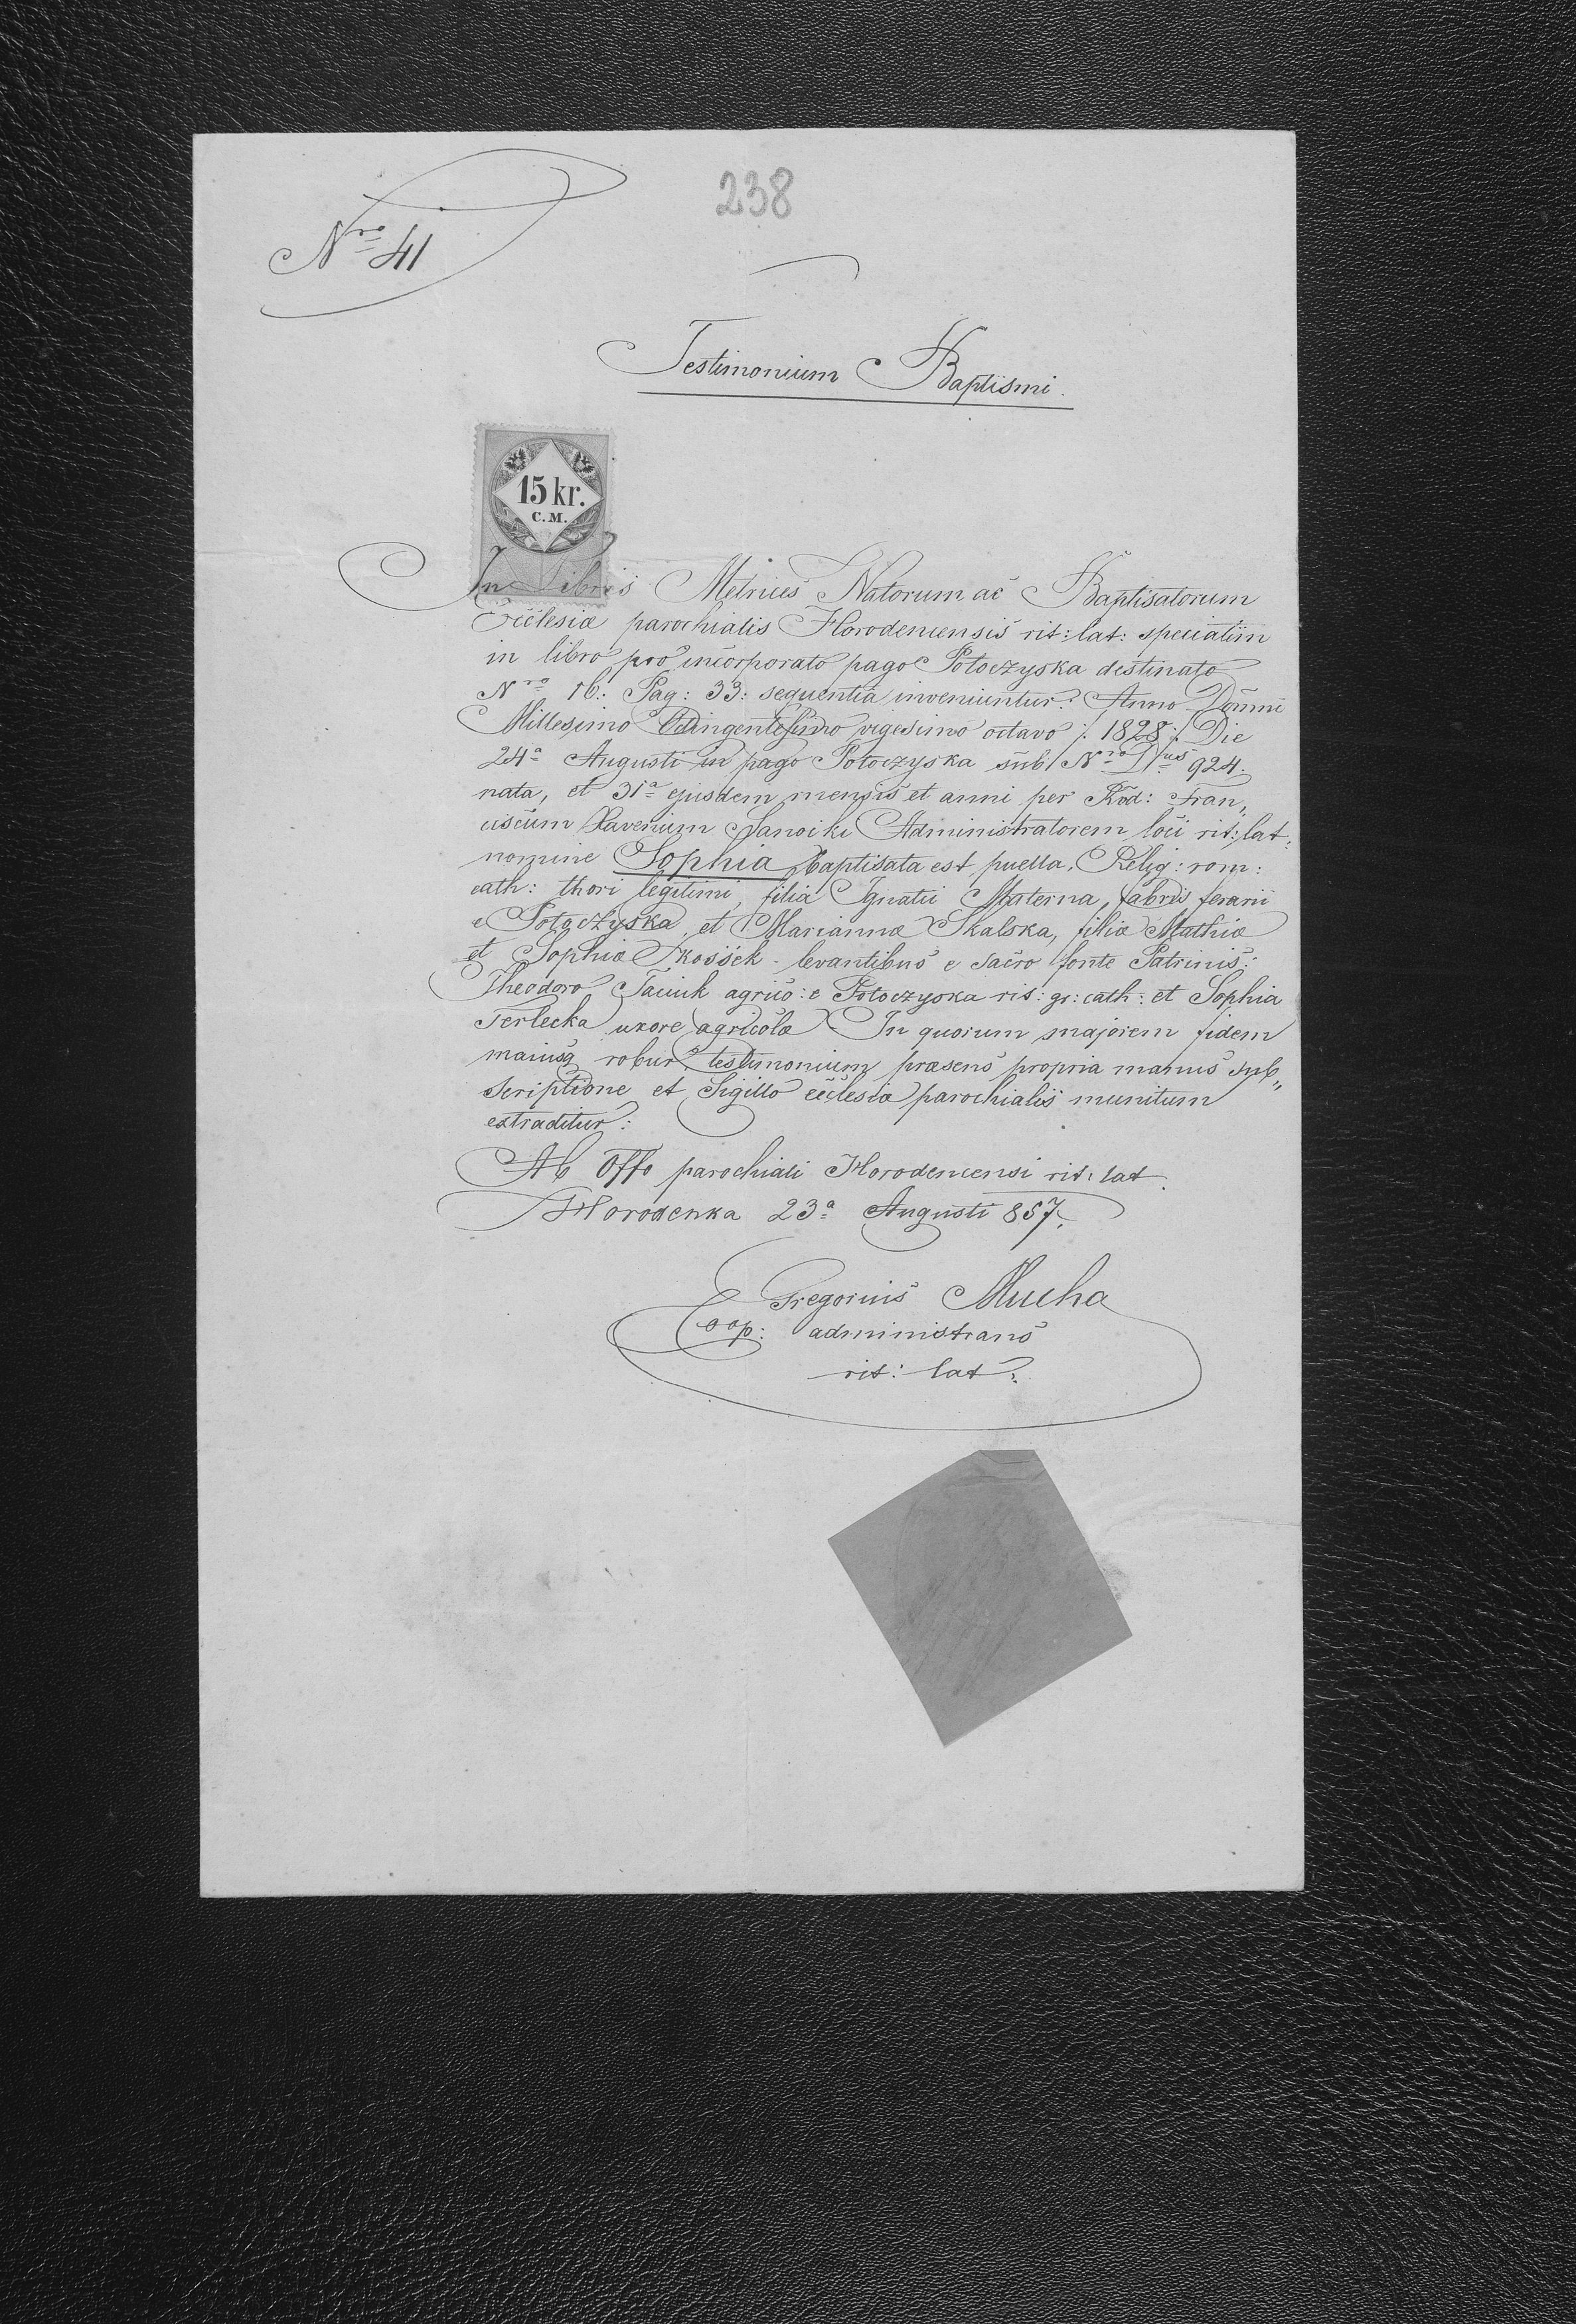 238
Nro 41
Testimonium Baptismi.
15 kr.
C.M.
In Libris Metrices Natorum ac Baptisatorum
Ecclesiæ parochialis Horodencensis rit: lat: speciatim
in libro pro incorporato pago Potoczyska destinato
Nro 16: Pag: 33: sequentia inveniuntur: Anno Domini
Millesimo Octingentesimo vigesimo octavo /: 1828 :/ Die
24a Augusti in pago Potoczyska sub Nro Dus 924.
nata, et 31a ejusdem mensis et anni per Rod: Fran„
ciscum Xaverium Sanoiki Administratorem loci rit: lat:
nomine Sophia baptisata est puella. Relig: rom:
cath: thori legitimi, filia Ignatii Materna, fabris ferarii
e Potoczyska, et Mariannæ Skalska, filiæ Mathiæ
et Sophiæ - levantibus e sacro fonte Patrinis:
Theodoro agrico: e Potoczyska rit: gr: cath: et Sophia
Terlecka uxore agricolæ. In quorum majorem fidem
maiusq robur testimonium præsens propria manus sub„
scriptione et Sigillo ecclesiæ parochialis munitum
extraditur:
Ab Offo parochiali Horodencensi rit: lat.
Horodenka 23a Augusti 857.
Gregorius Mucha
Coop: administrans
rit: lat: